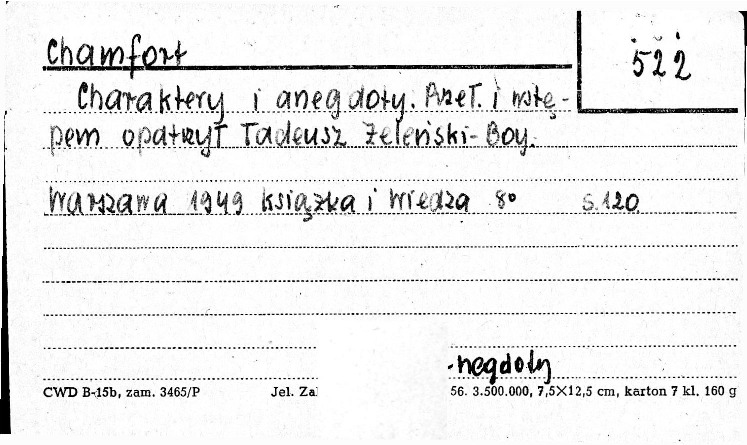 Chamfort
522
Charaktery i anegdoty. Przeł. i wstę-
pem opatrzył Tadeusz Żeleński-Boy.
Warszawa 1949 Książka i Wiedza 8° s.120
-negdoty
CWD B-15b, zam. 3465/P Jel. Zał 56. 3.500.000, 7,5×12,5 cm, karton 7 kl. 160 g